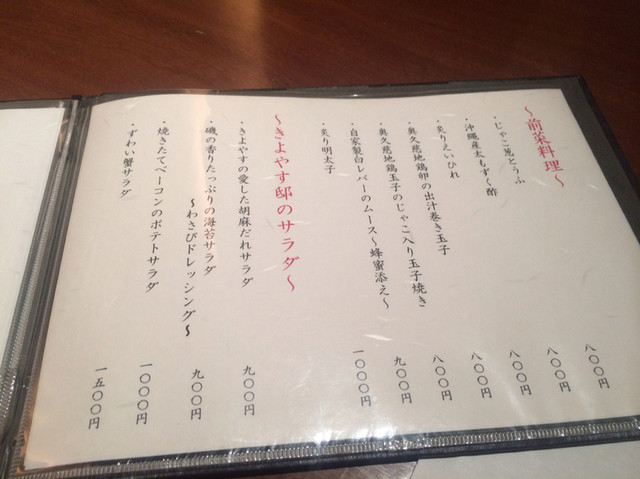 ～前菜料理～
・じゃこ葱とうふ 八〇〇円
・沖縄産太もずく酢 八〇〇円
・炙りえいひれ 八〇〇円
・奥久慈地鶏卵の出汁巻き玉子 八〇〇円
・奥久慈地鶏玉子のじゃこ入り玉子焼き 八〇〇円
・自家製白レバーのムース～蜂蜜添え～ 九〇〇円
・炙り明太子 一〇〇〇円
～きよやす邸のサラダ～
・きよやすの愛した胡麻だれサラダ 九〇〇円
・磯の香りたっぷりの海苔サラダ
～わさびドレッシング～ 九〇〇円
・焼きたてベーコンのポテトサラダ 一〇〇〇円
・ずわい蟹サラダ 一五〇〇円